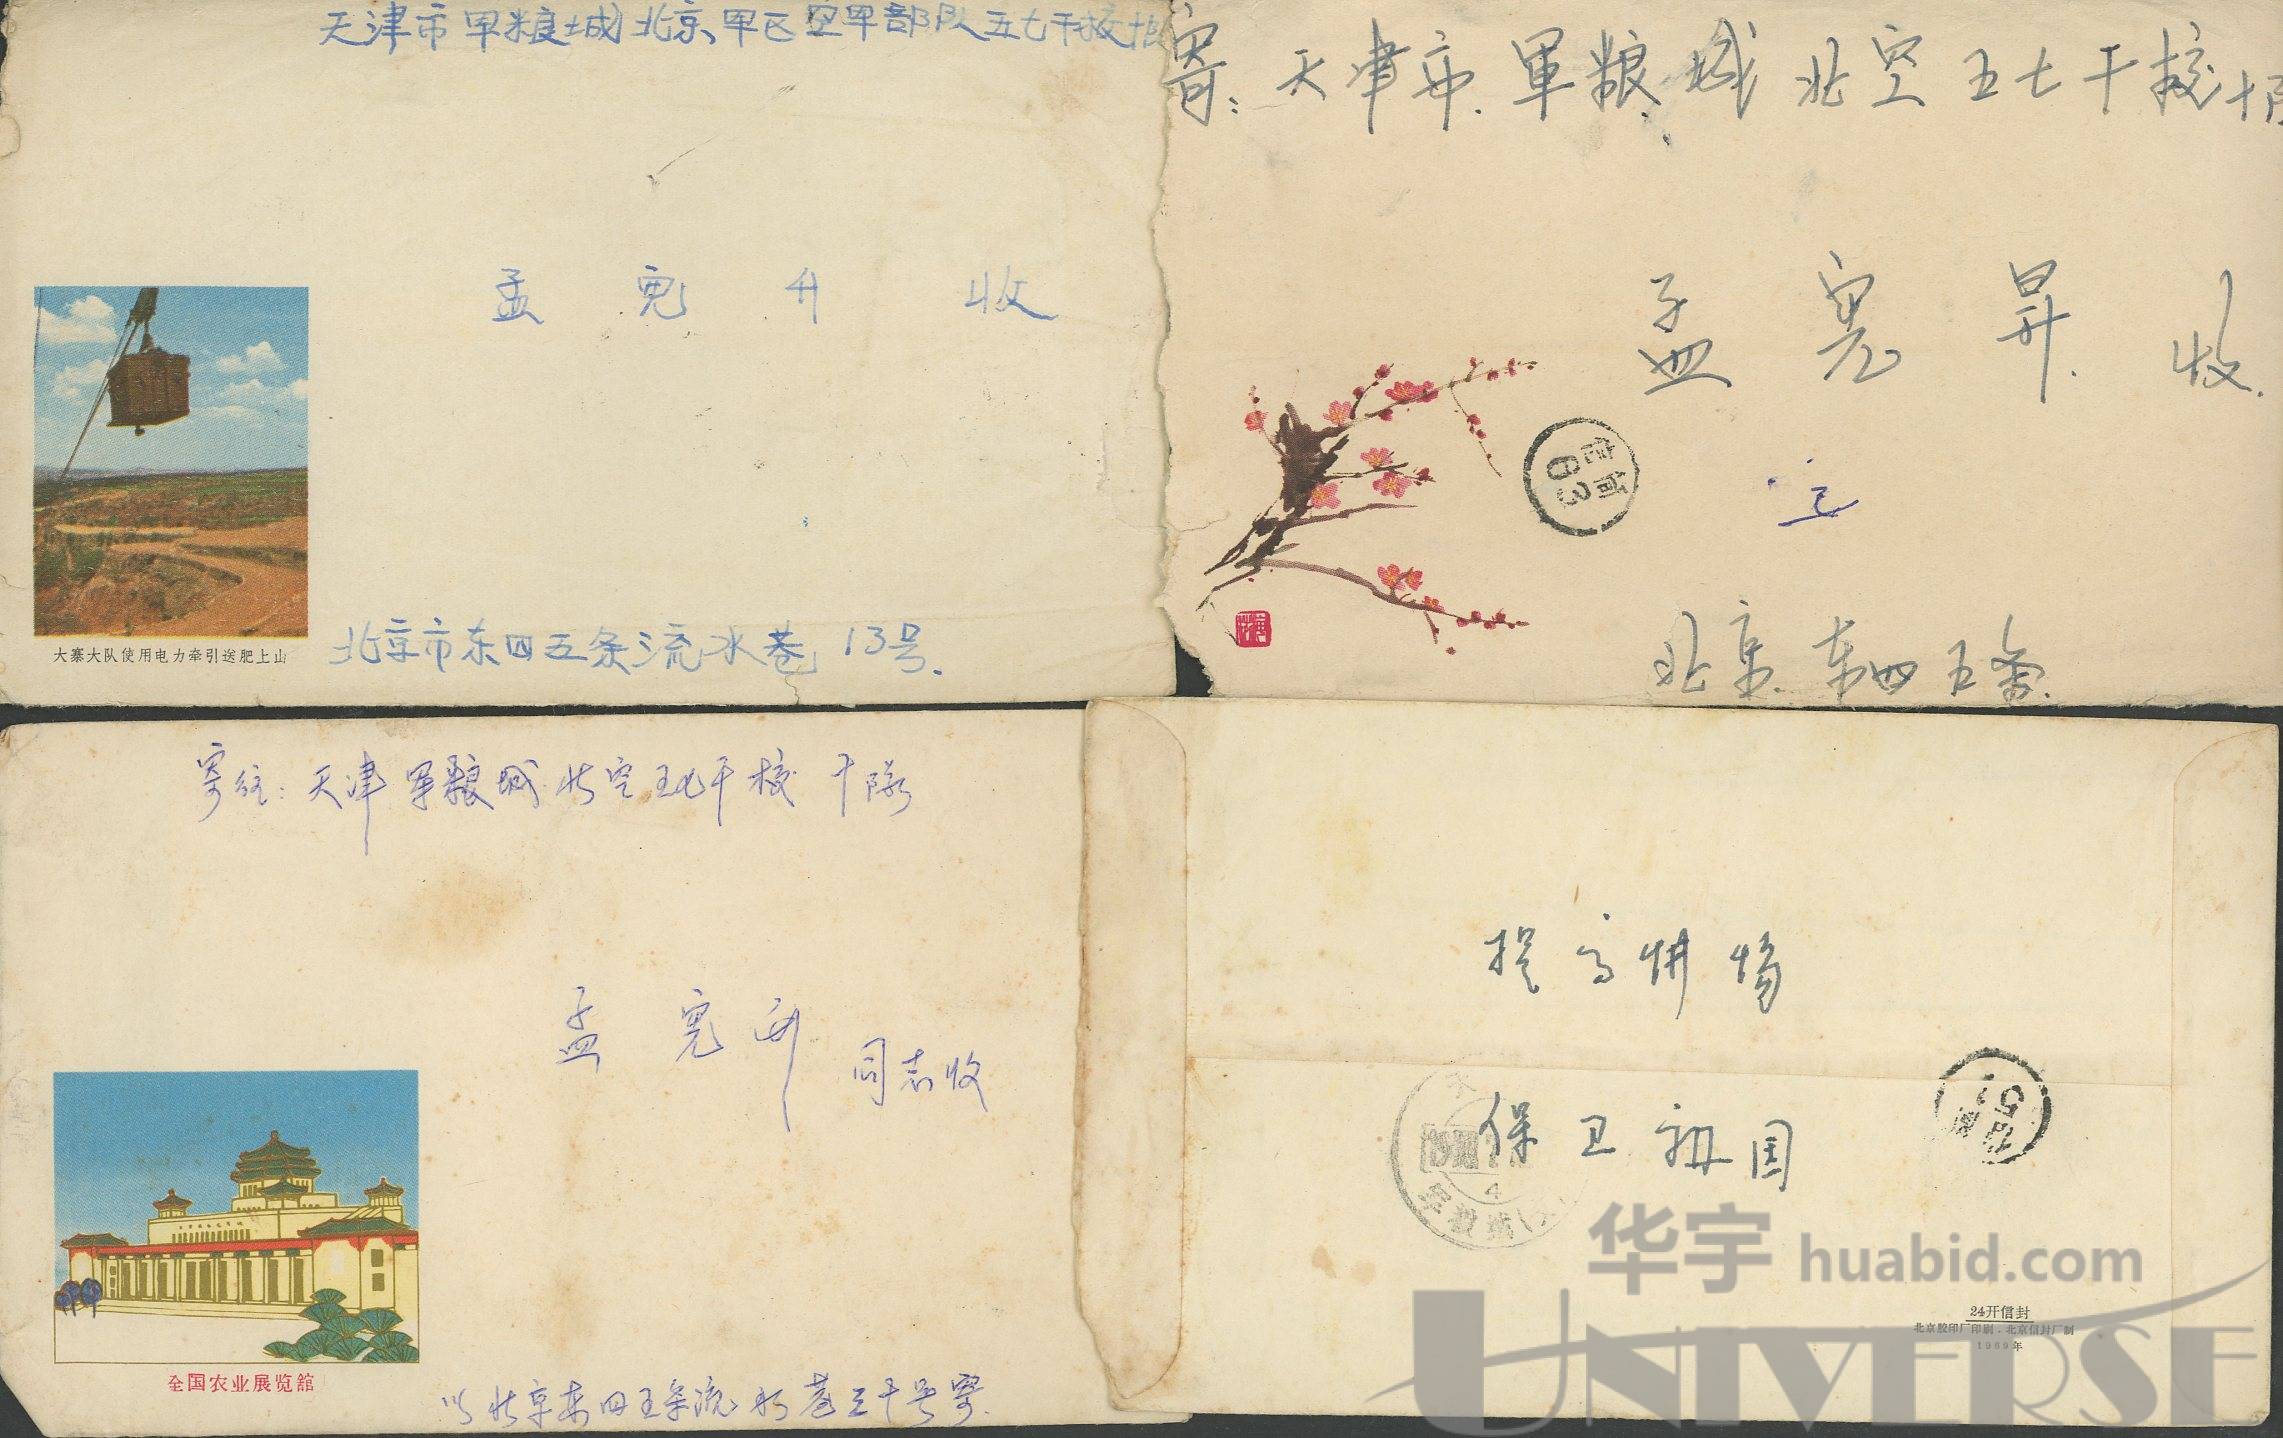 天津市军粮城北京军区空军部队五七干校
孟宪升 收
大寨大队使用电力牵引送肥上山
北京市东四五条流水巷 13号.
寄: 天津市.軍粮城 北空五七干校十
孟宪昇 收.
03
北京.东四五条.
寄往: 天津軍粮城北空五七干校十队
孟宪升 同志收
全国农业展览馆
北京东四五条流水巷三十号寄.
提高
保卫祖国
4
华宇 huabid.com
UNIVERSE
24开信封
北京胶印厂印刷·北京信封厂制
1969年